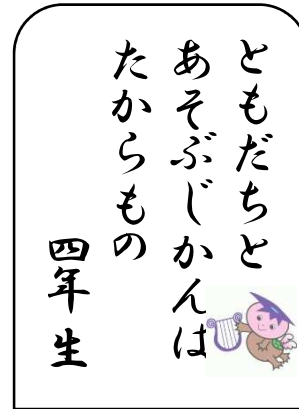 ともだちと
あそぶじかんは
たからもの
四年生